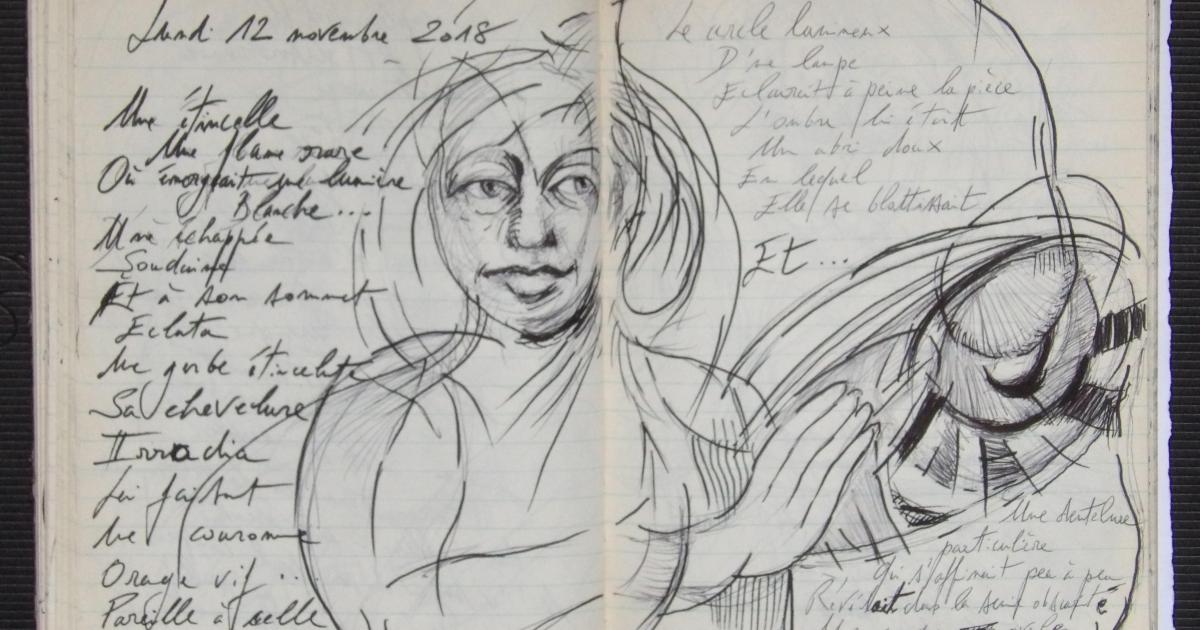 Lundi 12 novembre 2018
Une étincelle
Une flame orare
Où émergeait une lumière
Blanche...
Une échappée
Soudaine
Et à son sommet
Eclata
Une gerbe étincelante
Sa chevelure
Irradia
Lui faisant
Une couronne
Orage vif...
Pareille à celle
Le cercle lumineux
D'une lampe
Eclairait à peine la pièce
L'ombre lui était
Un abri doux
En lequel
Elle se blottissait
Et...
Une dentelure
particulière
Qui s'affinait peu à peu
Révélait dans la semi obscurité